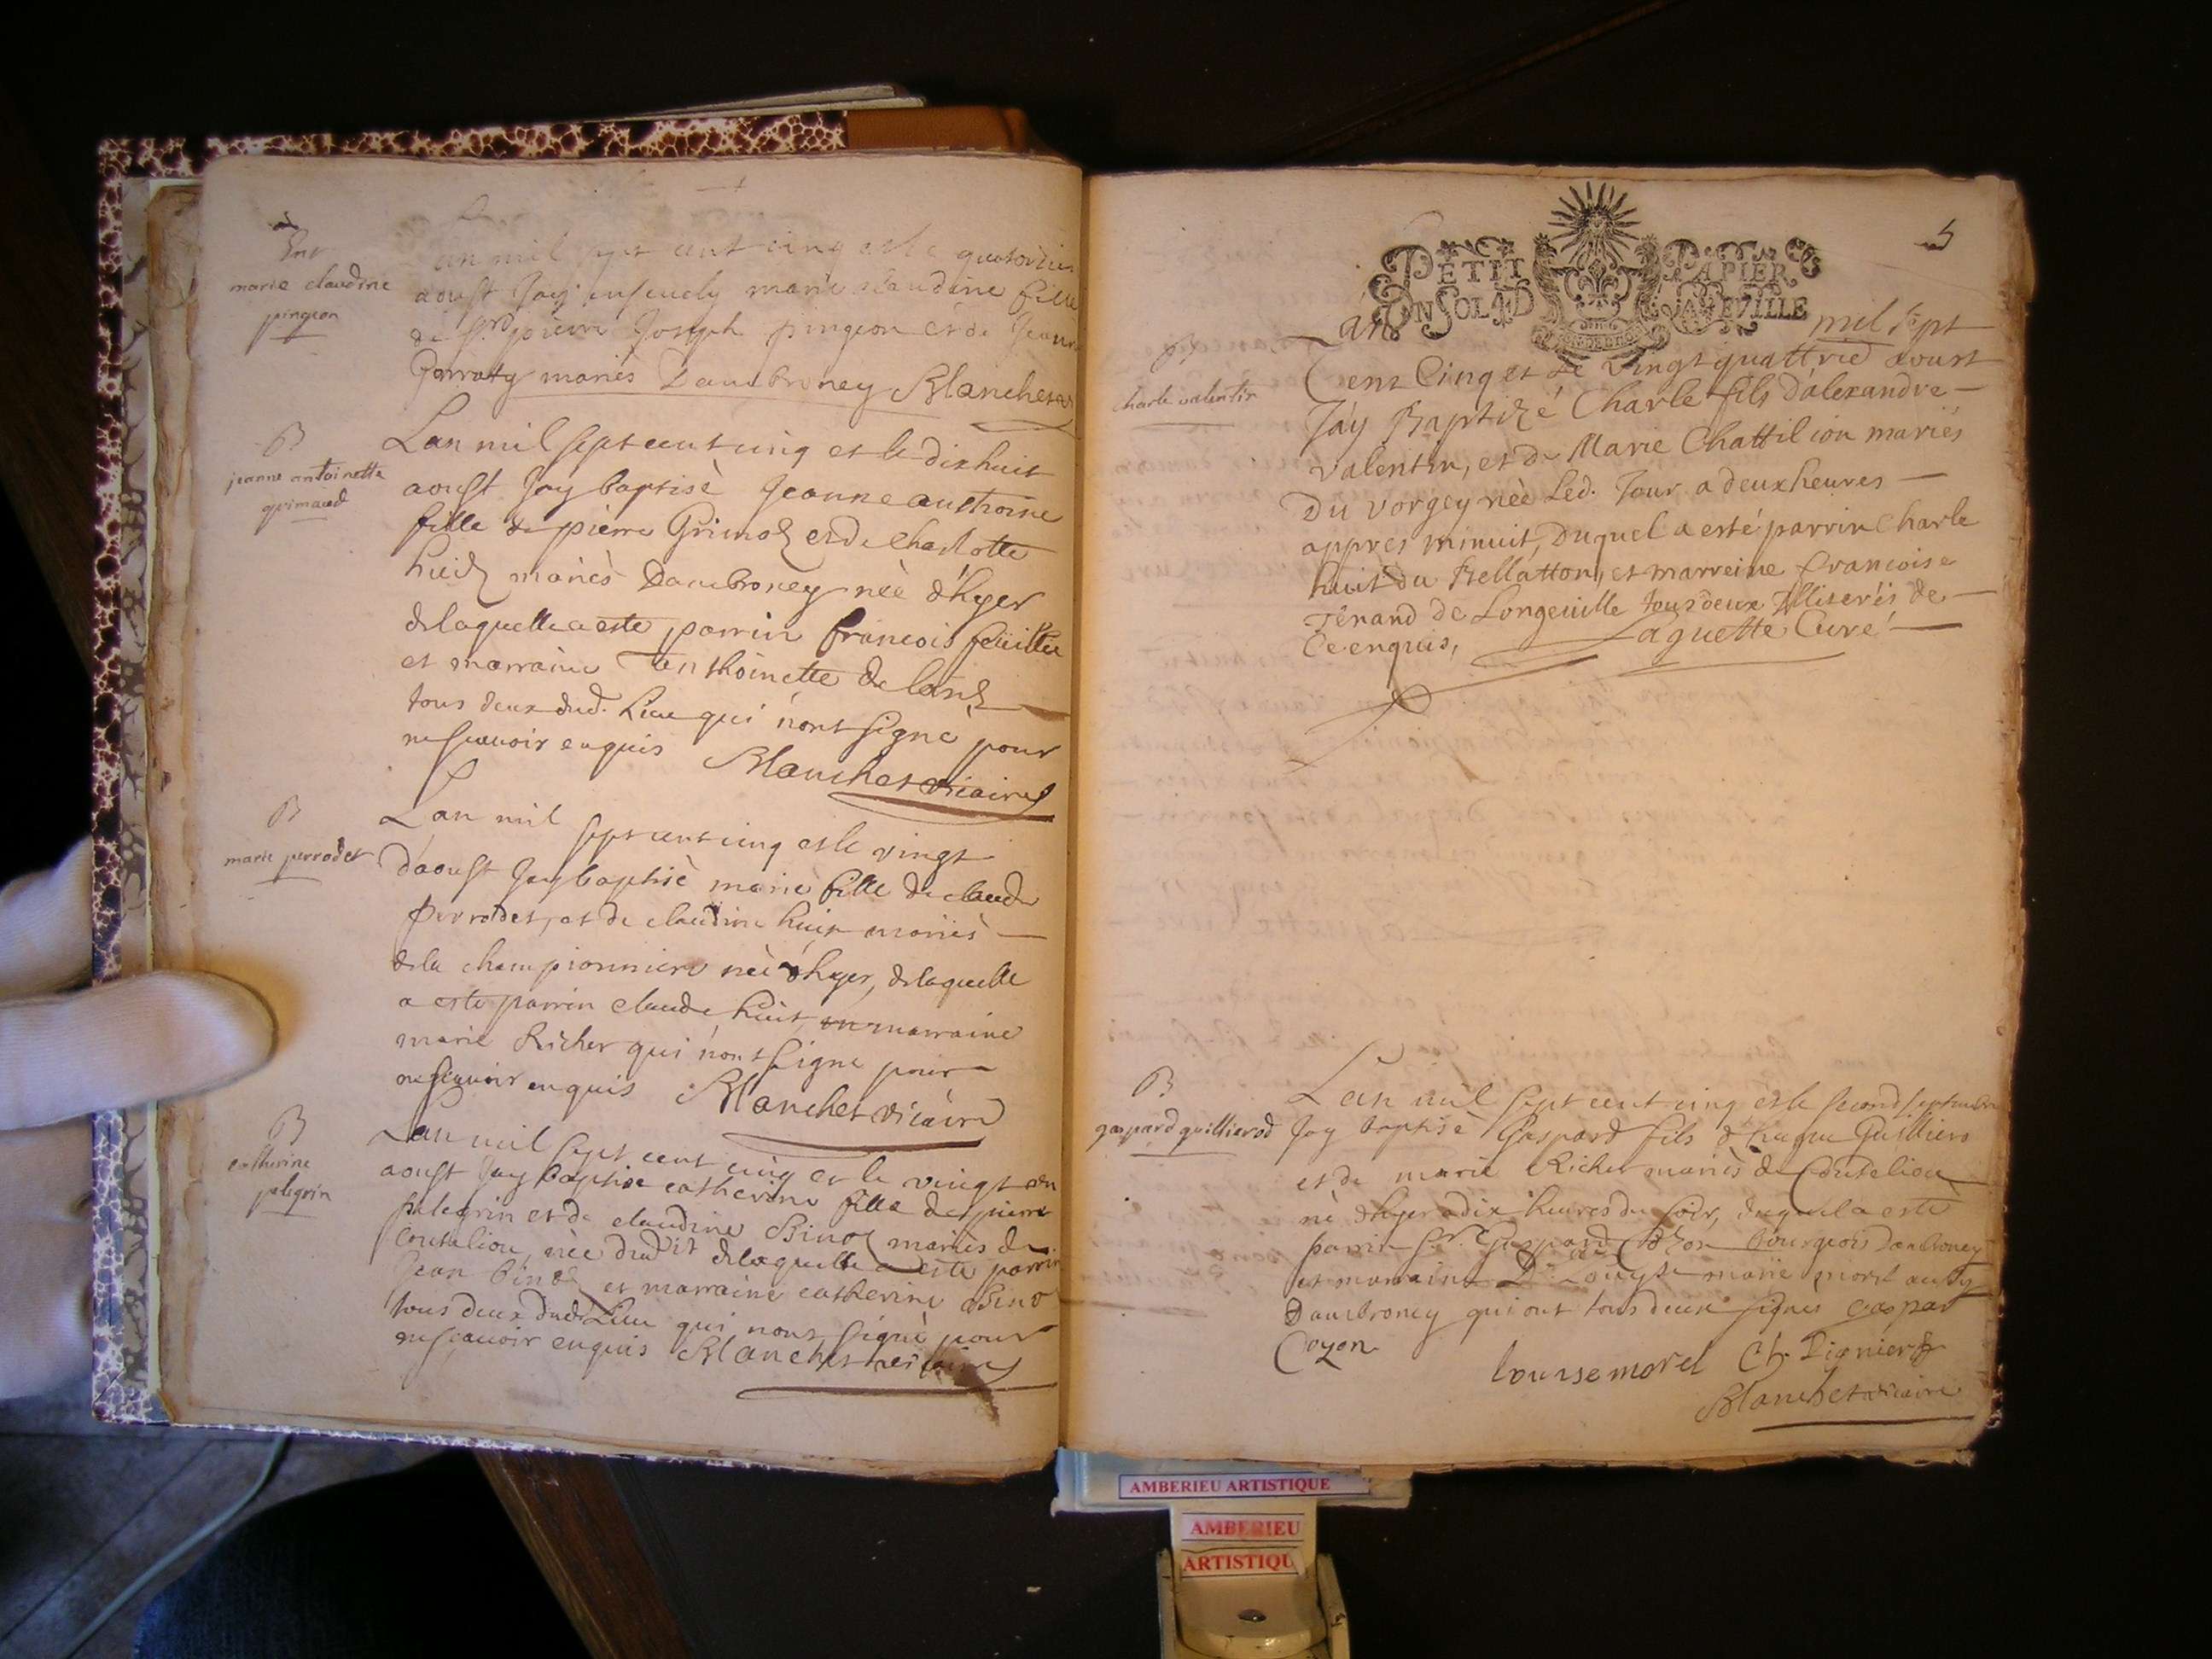 Ent
marie claudine
pingeon
an mil sept cent cinq et le quatorzieme
aoust Jay enseuely marie claudine fille
de Sr. pierre Joseph pingeon et de Jeanne
mariés Dambroney Blanchet
B
jeanne antoinette
grimaud
Lan mil sept cent cinq et le dix huit
aoust Jay baptisè Jeanne anthoine
fille de pierre Grimoz et de Charlotte
huid mariès Dambroney nèe d'hyer
delaquelle a este parrin francois feuillie
et marraine anthoinette de
tous deux dud. Lieu qui n'ont signè pour
ne scauoir enquis Blanchet vicaire
B
marie perrodet
Lan mil sept cent cinq et le vingt
d'aoust Jay baptisè marie fille de claude
perrodet, et de claudine huit mariès
de la championniere nèe d'hyer, delaquelle
a este parrin claude huit, et marraine
marie Richer qui n'ont signe pour
ne scauoir enquis Blanchet vicaire
B
catherine
pelegrin
Lan mil sept cent cinq et le vingt un
aoust Jay baptise catherine fille de pierre
pelegrin et de claudine Binoz mariès de
Coutelieu, nèe dudit delaquelle a este parrin
Jean Binoz et marraine catherine Bino
tous deux dud. Lieu qui n'ont signè pour
ne scauoir enquis Blanchet vicaire
5
PETIT PAPIER
ON SOL 4 D LA FEVILLE
B
charle valentin
Lán mil sept
Cent Cinq et Le vingt quattrie Aoust
Jáy Baptizé Charle fils D'alexandre
valentin, et de Marie Chattilion mariés
Du vorgey nèe Led. Jour a deux heures
appres minuit, Duquel a esté parrin Charle
huit du Bellatton, et marreine francoise
Tenand de Longeuille tous deux Illiterés de
Ce enquis, Laguette Curé
B
gaspard guillierod
Lan mil sept cent cinq et le second septembre
Jay baptisè Gaspard fils d Guilliero
et de marie Richer mariès de Coutelieu
nè d'hyer a dix heures du soir, duquel a este
parrin Sr. Gaspard Cozon bourgeois Dambroney
et marraine Dlle Louyse marie morel aussy
Dambroney qui ont tous deux signès Caspar
Cozon
Louise morel Ch. Pignier
Blanchet vicaire
AMBERIEU ARTISTIQUE
AMBERIEU
ARTISTIQU